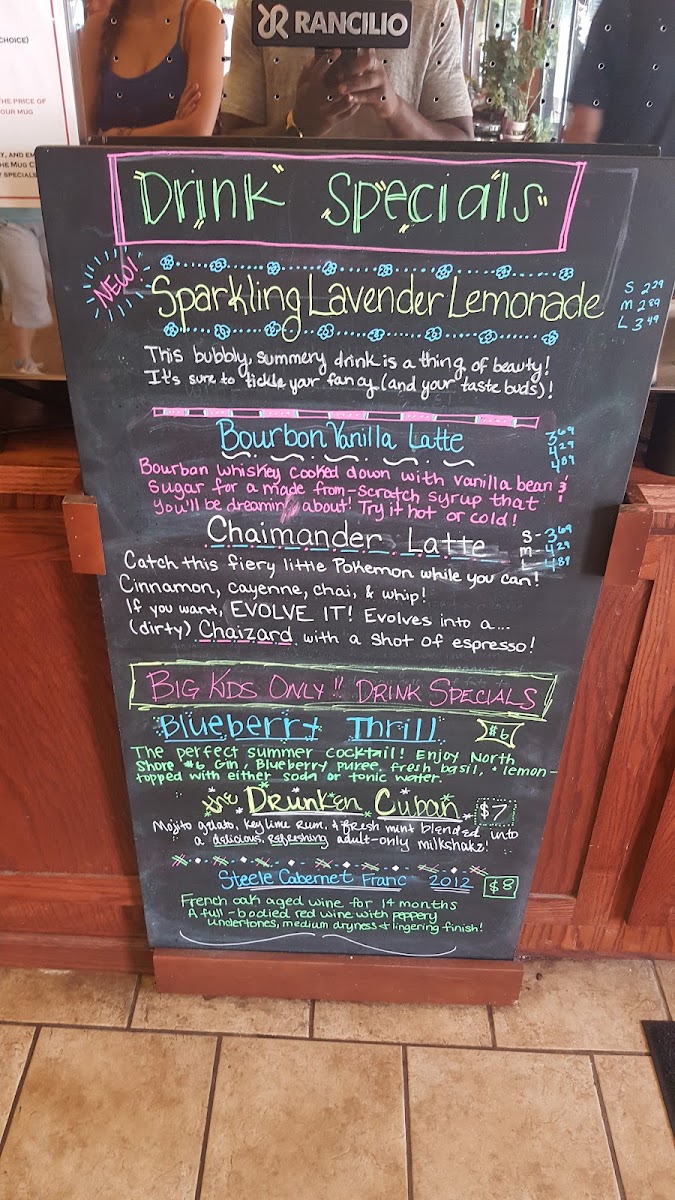 CHOICE)
RANCILIO
THE PRICE OF
OUR MUG
Y, AND EM
HE MUG C
Y SPECIALS
Drink Specials
NEW!
Sparkling Lavender Lemonade
S 2.29
M 2.89
L 3.49
This bubbly, summery drink is a thing of beauty!
It's sure to tickle your fancy (and your taste buds)!
Bourbon Vanilla Latte
3.69
4.29
4.89
Bourbon whiskey cooked down with vanilla bean &
sugar for a made from-scratch syrup that
you'll be dreaming about! Try it hot or cold!
Chaimander Latte
S - 3.69
M - 4.29
L - 4.89
Catch this fiery little Pokemon while you can!
Cinnamon, cayenne, chai, & whip!
If you want, EVOLVE IT! Evolves into a...
(dirty) Chaizard with a shot of espresso!
BIG KIDS ONLY!! DRINK SPECIALS
Blueberry Thrill $6
The perfect summer cocktail! Enjoy North
Shore #6 Gin, Blueberry puree, fresh basil, + lemon-
topped with either soda or tonic water
the Drunken Cuban $7
Mojito gelato, key lime rum, & fresh mint blended into
a delicious, refreshing adult-only milkshake!
Steele Cabernet Franc 2012 $8
French oak aged wine for 14 months
A full-bodied red wine with peppery
undertones, medium dryness + lingering finish!